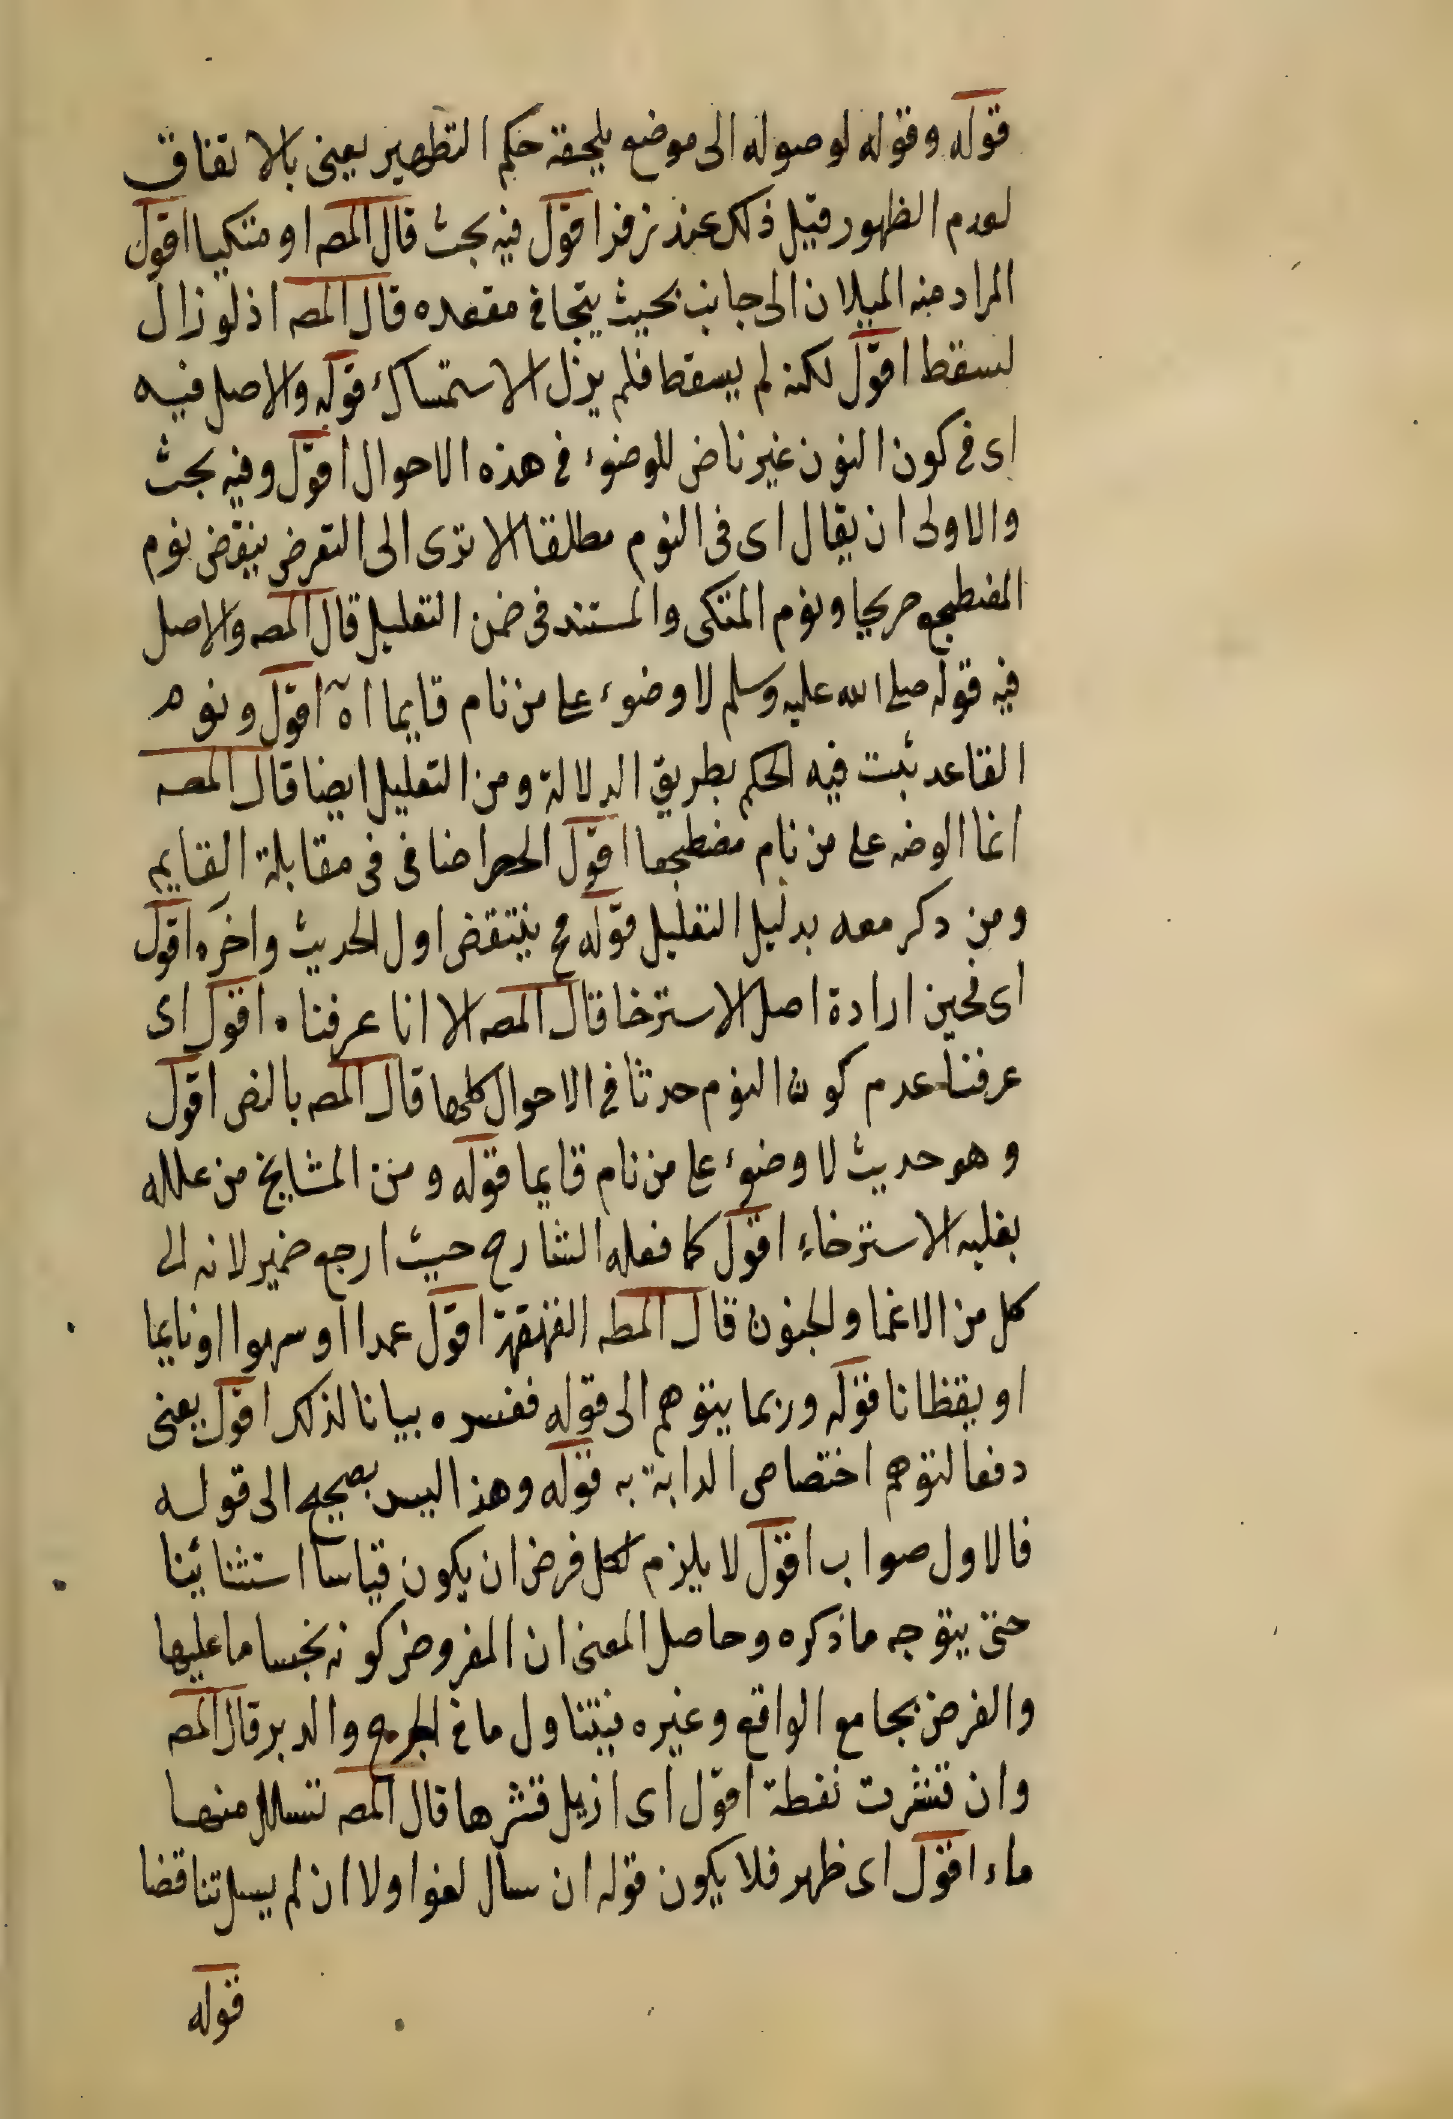 قوله وقوله لوصوله الى موضع يلحقه حكم التطهير يعنى بالاتفاق
لعدم الظهور قيل ذلك عند زفر اقول فيه بحث قال المصه او متكيا اقول
المراد منه الميلان الى جانب بحيث يتجافى مقعده قال المصه اذ لو زال
لسقط اقول لكنه لم يسقط فلم يزل الاستمساك قوله والاصل فيه
اى فى كون النون غير ناض للوضوء فى هذه الاحوال اقول وفيه بحث
والاولى ان يقال اى فى النوم مطلقا الا ترى الى التعرض بنقض نوم
المضطجع صريحا ونوم المتكى والمستند فى ضمن التعليل قال المصه والاصل
فيه قوله صلى الله عليه وسلم لا وضوء على من نام قايما اه اقول ونوم
القاعد ثبت فيه الحكم بطريق الدلالة ومن التعليل ايضا قال المصه
انما الوضه على من نام مضطجعا اقول الحصر اضافى فى مقابلة القايم
ومن ذكر معه بدليل التعليل قوله مح ينتقض اول الحديث واخره اقول
اى فحين ارادة اصل الاسترخا قال المصه الا انا عرفناه اقول اى
عرفنا عدم كون النوم حدثا فى الاحوال كلها قال المصه بالنص اقول
وهو حديث لا وضوء على من نام قايما قوله ومن المشايخ من علله
بغلبه الاسترخاء اقول كما فعله الشارح حيث ارجع ضمير لانه الى
كل من الاغما والجنون قال المصه القهقهة اقول عمدا او سهوا او نايما
او يقظانا قوله وربما يتوهم الى قوله ففسره بيانا لذلك اقول يعنى
دفعا لتوهم اختصاص الدابة به قوله وهذا ليس بصحيح الى قوله
فالاول صواب اقول لا يلزم لكل فرض ان يكون قياسا استثنائينا
حتى يتوجه ما ذكره وحاصل المعنى ان المفروض كونه نجسا ما عليها
والفرض يجامع الواقع وغيره فيتناول ما فى الجرح والدبر قال المصه
وان قشرت نفطة اقول اى ازيل قشرها قال المصه تسال منها
ماء اقول اى ظهر فلا يكون قوله ان سال لغوا ولا ان لم يسل تناقضا
قوله